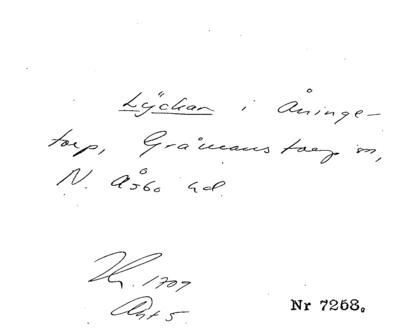 Lyckan i Åninge-
torp, Gråmanstorp sn,
N. Åsbo hd
1709
Akt 5
Nr 7258.